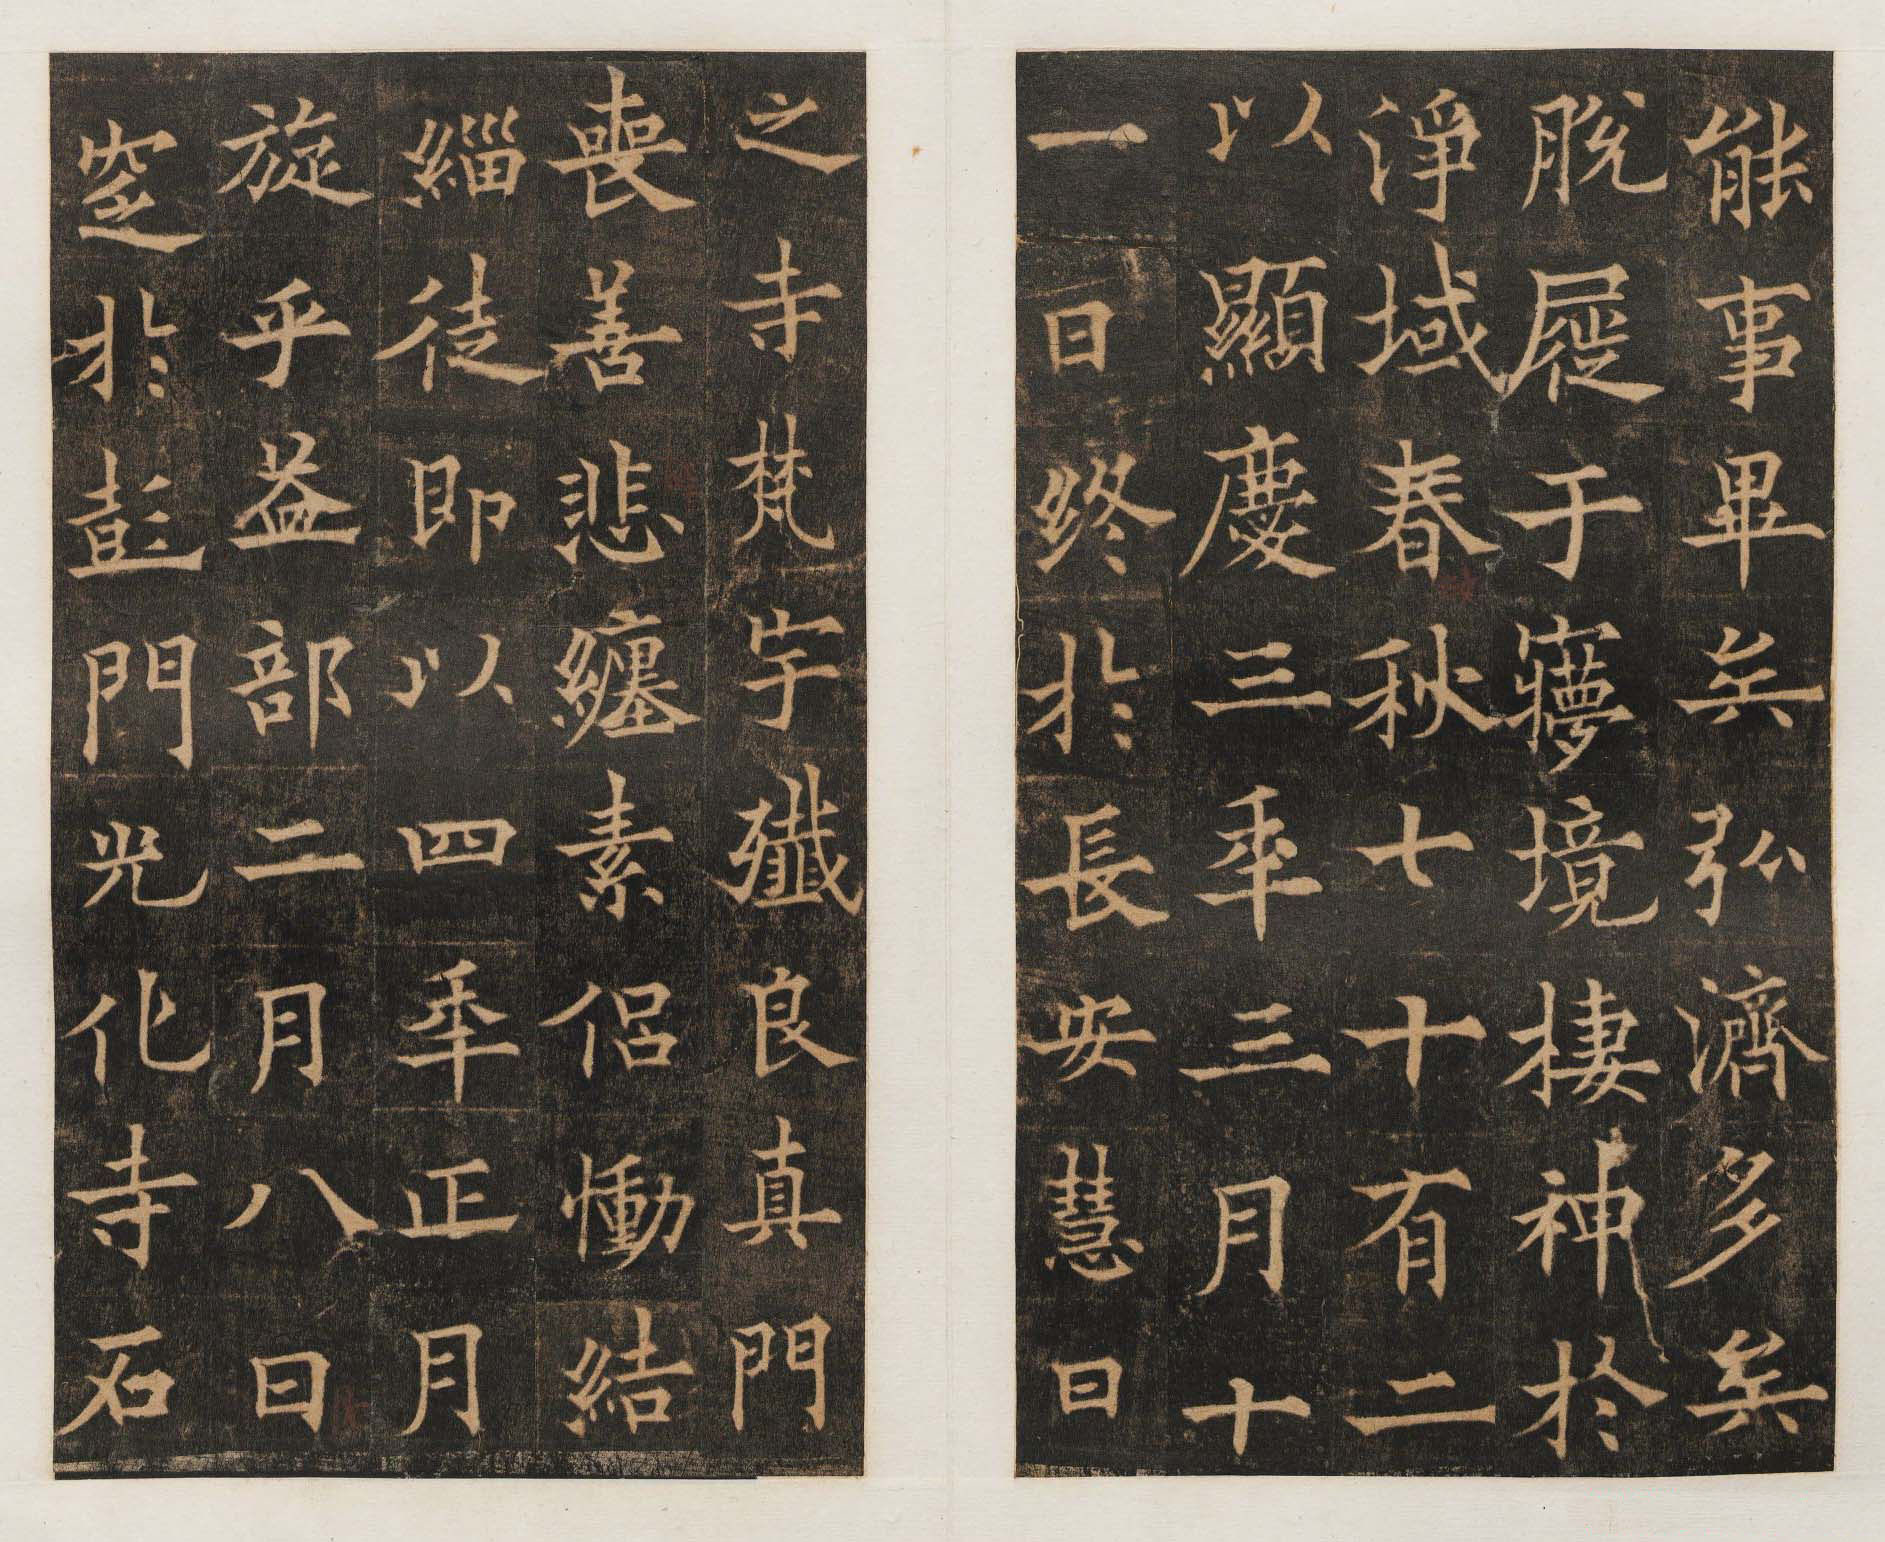 能事畢矣弘濟多矣
脫屣于寢境棲神於
淨域春秋七十有二
以顯慶三年三月十
一日終於長安慧日
之寺梵宇殲良真門
喪善悲纏素侶慟結
緇徒即以四年正月
旋乎益部二月八日
窆於彭門光化寺石